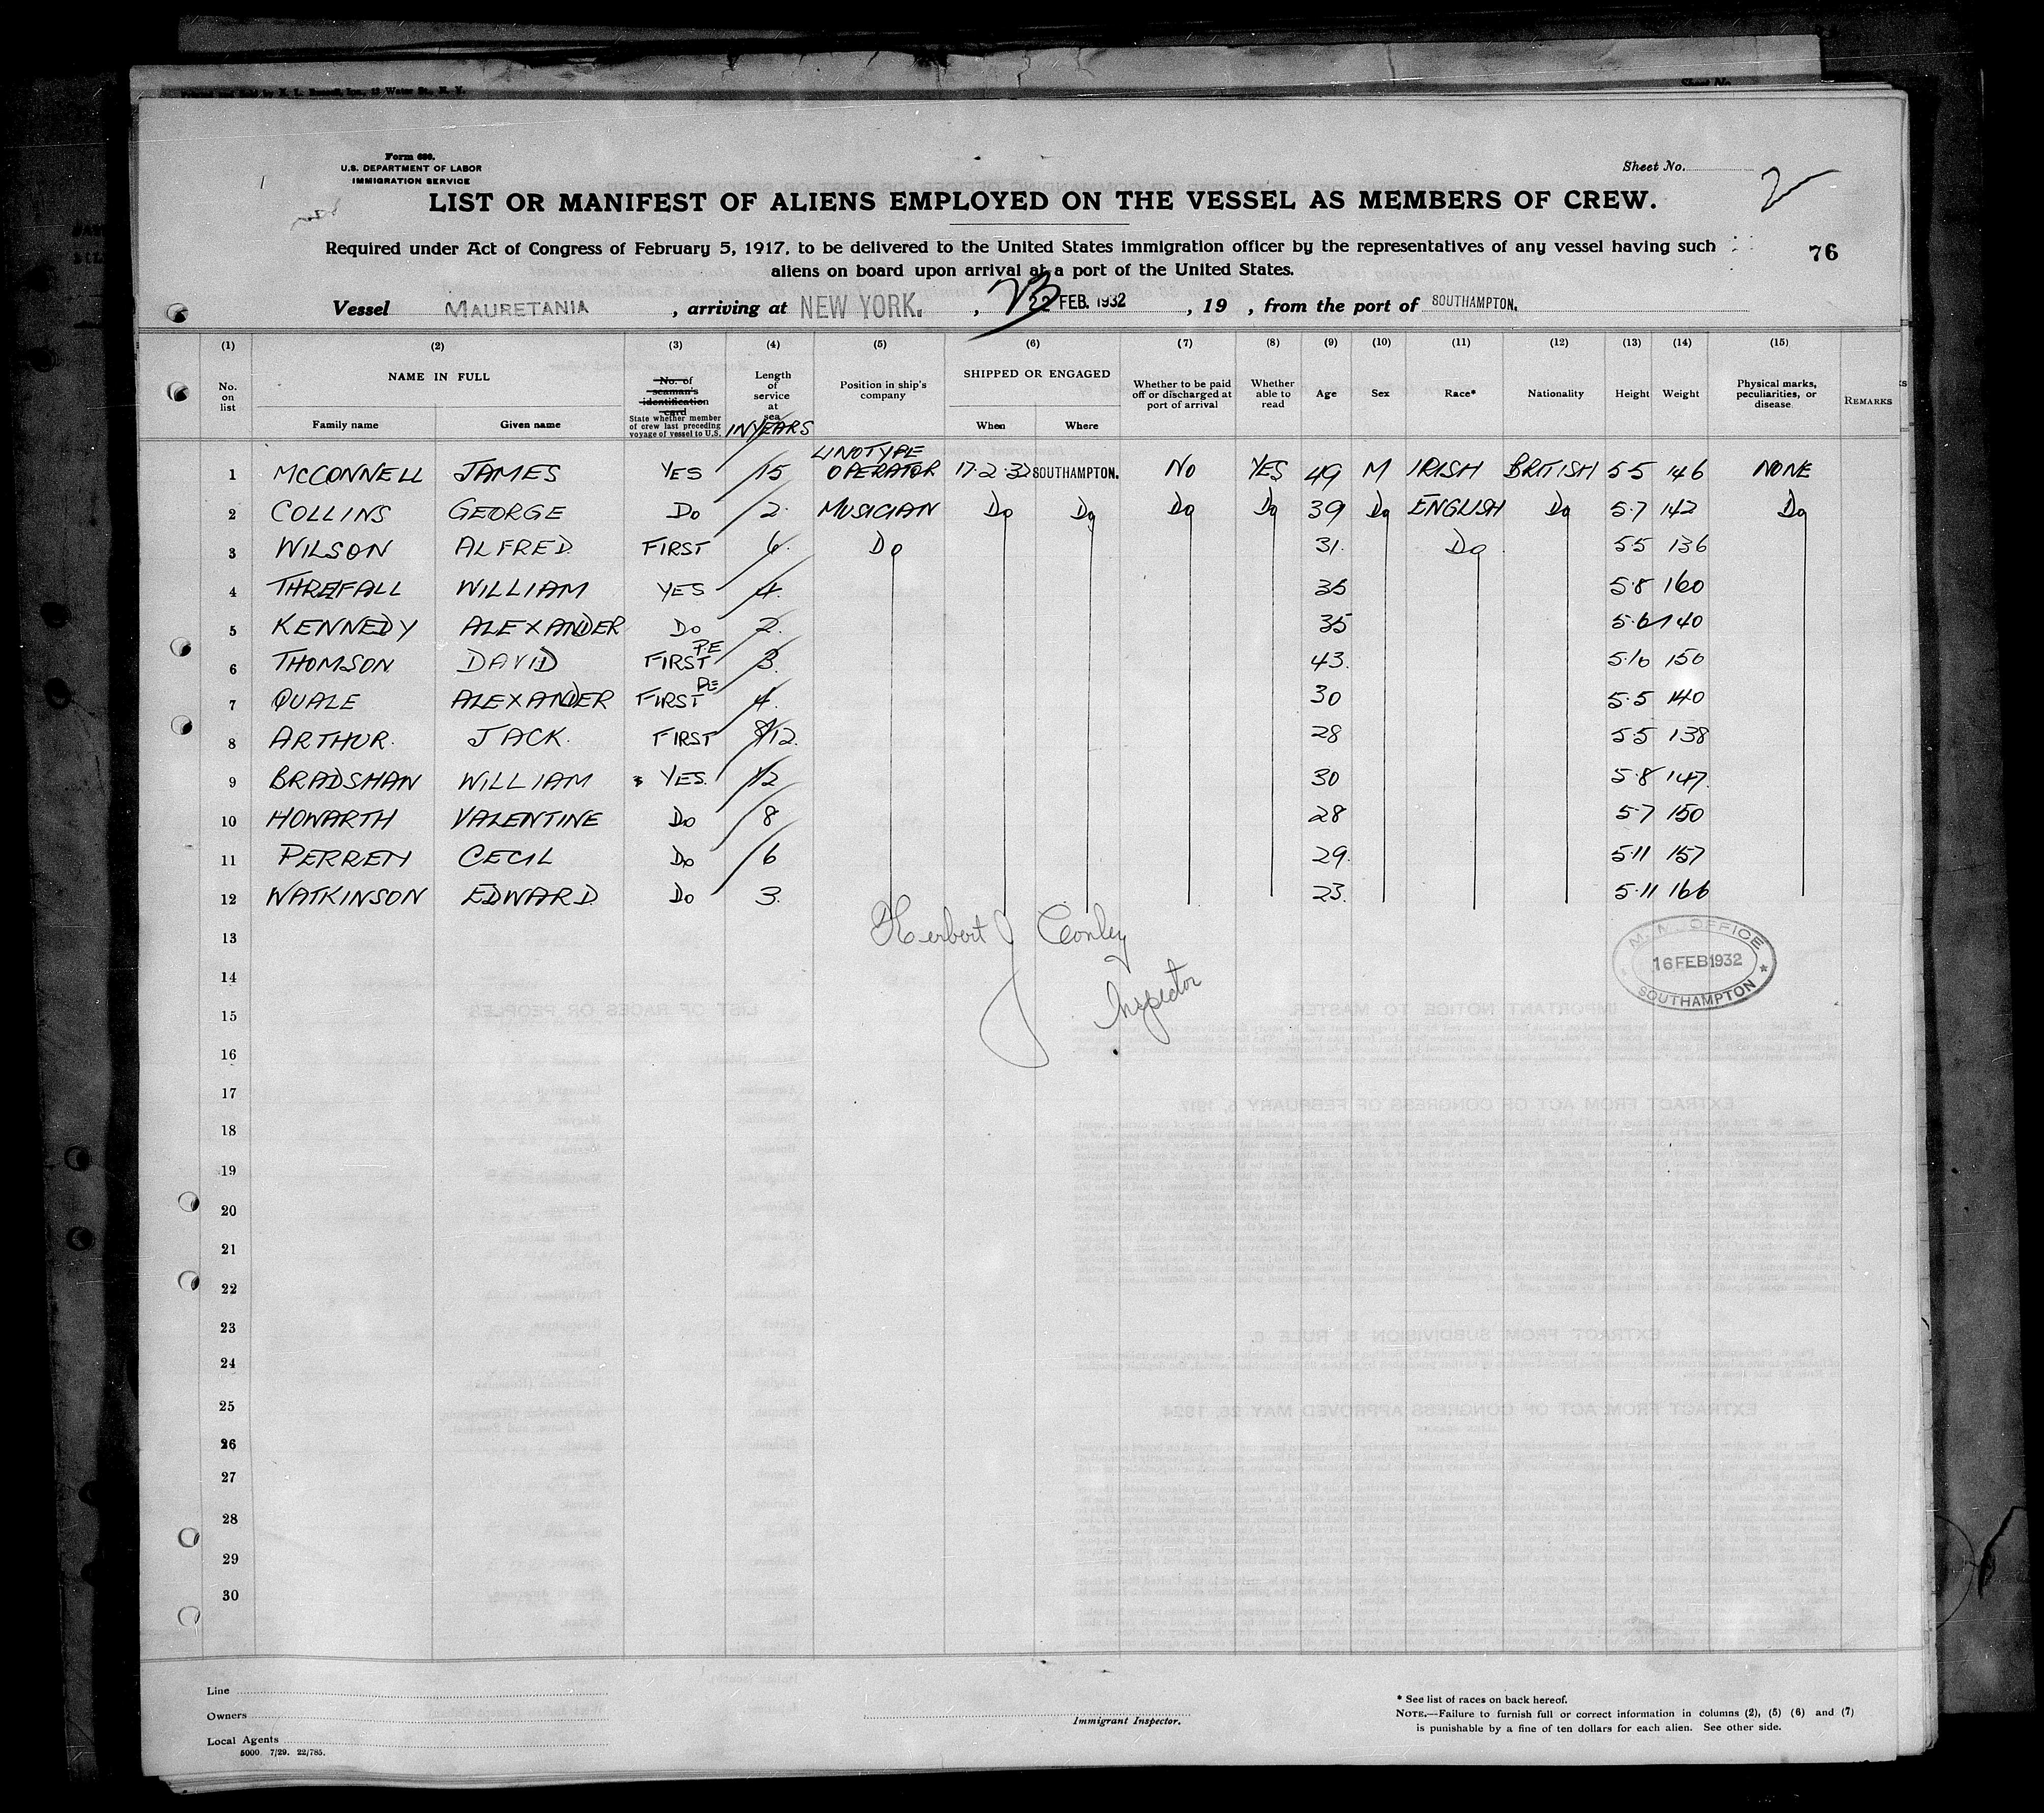 Form 680.
U.S. DEPARTMENT OF LABOR
IMMIGRATION SERVICE
Sheet No.
2
LIST OR MANIFEST OF ALIENS EMPLOYED ON THE VESSEL AS MEMBERS OF CREW.
Required under Act of Congress of February 5, 1917, to be delivered to the United States immigration officer by the representatives of any vessel having such
aliens on board upon arrival at a port of the United States.
76
Vessel MAURETANIA, arriving at NEW YORK. , 22 FEB. 1932 , 19 , from the port of SOUTHAMPTON.
(1) (2) (3) (4) (5) (6) (7) (8) (9) (10) (11) (12) (13) (14) (15)
No. on list
NAME IN FULL
Family name
Given name
No. of seaman's identification card
State whether member of crew last preceding voyage of vessel to U.S.
Length of service at sea
IN YEARS
Position in ship's company
SHIPPED OR ENGAGED
When
Where
Whether to be paid off or discharged at port of arrival
Whether able to read
Age
Sex
Race*
Nationality
Height
Weight
Physical marks, peculiarities, or disease
REMARKS
1 McCONNELL JAMES YES 15 LINOTYPE OPERATOR 17-2-32 SOUTHAMPTON. NO YES 49 M IRISH BRITISH 5 5 146 NONE
2 COLLINS GEORGE Do 2 MUSICIAN Do Do Do Do 39 Do ENGLISH Do 5.7 142 Do
3 WILSON ALFRED FIRST 6. Do 31. Do 5 5 136
4 THRELFALL WILLIAM YES 4. 35 5.8 160
5 KENNEDY ALEXANDER Do 2. 35 5.6 140
6 THOMSON DAVID FIRST P.E 3. 43. 5.10 150
7 QUALE ALEXANDER FIRST PE 4. 30 5.5 140
8 ARTHUR. JACK. FIRST 8/12. 28 5 5 138
9 BRADSHAW WILLIAM YES. 12 30 5.8 147.
10 HOWARTH VALENTINE Do 8 28 5.7 150
11 PERREN CECIL Do 6 29. 5.11 157
12 WATKINSON EDWARD. Do 3. 23. 5.11 166
13
14
15
16
17
18
19
20
21
22
23
24
25
26
27
28
29
30
Herbert J Conley
Inspector
M. M. OFFICE
16 FEB 1932
SOUTHAMPTON
Line
Owners
Local Agents
5000 7/29. 22/785.
Immigrant Inspector.
* See list of races on back hereof.
NOTE.—Failure to furnish full or correct information in columns (2), (5) (6) and (7)
is punishable by a fine of ten dollars for each alien. See other side.